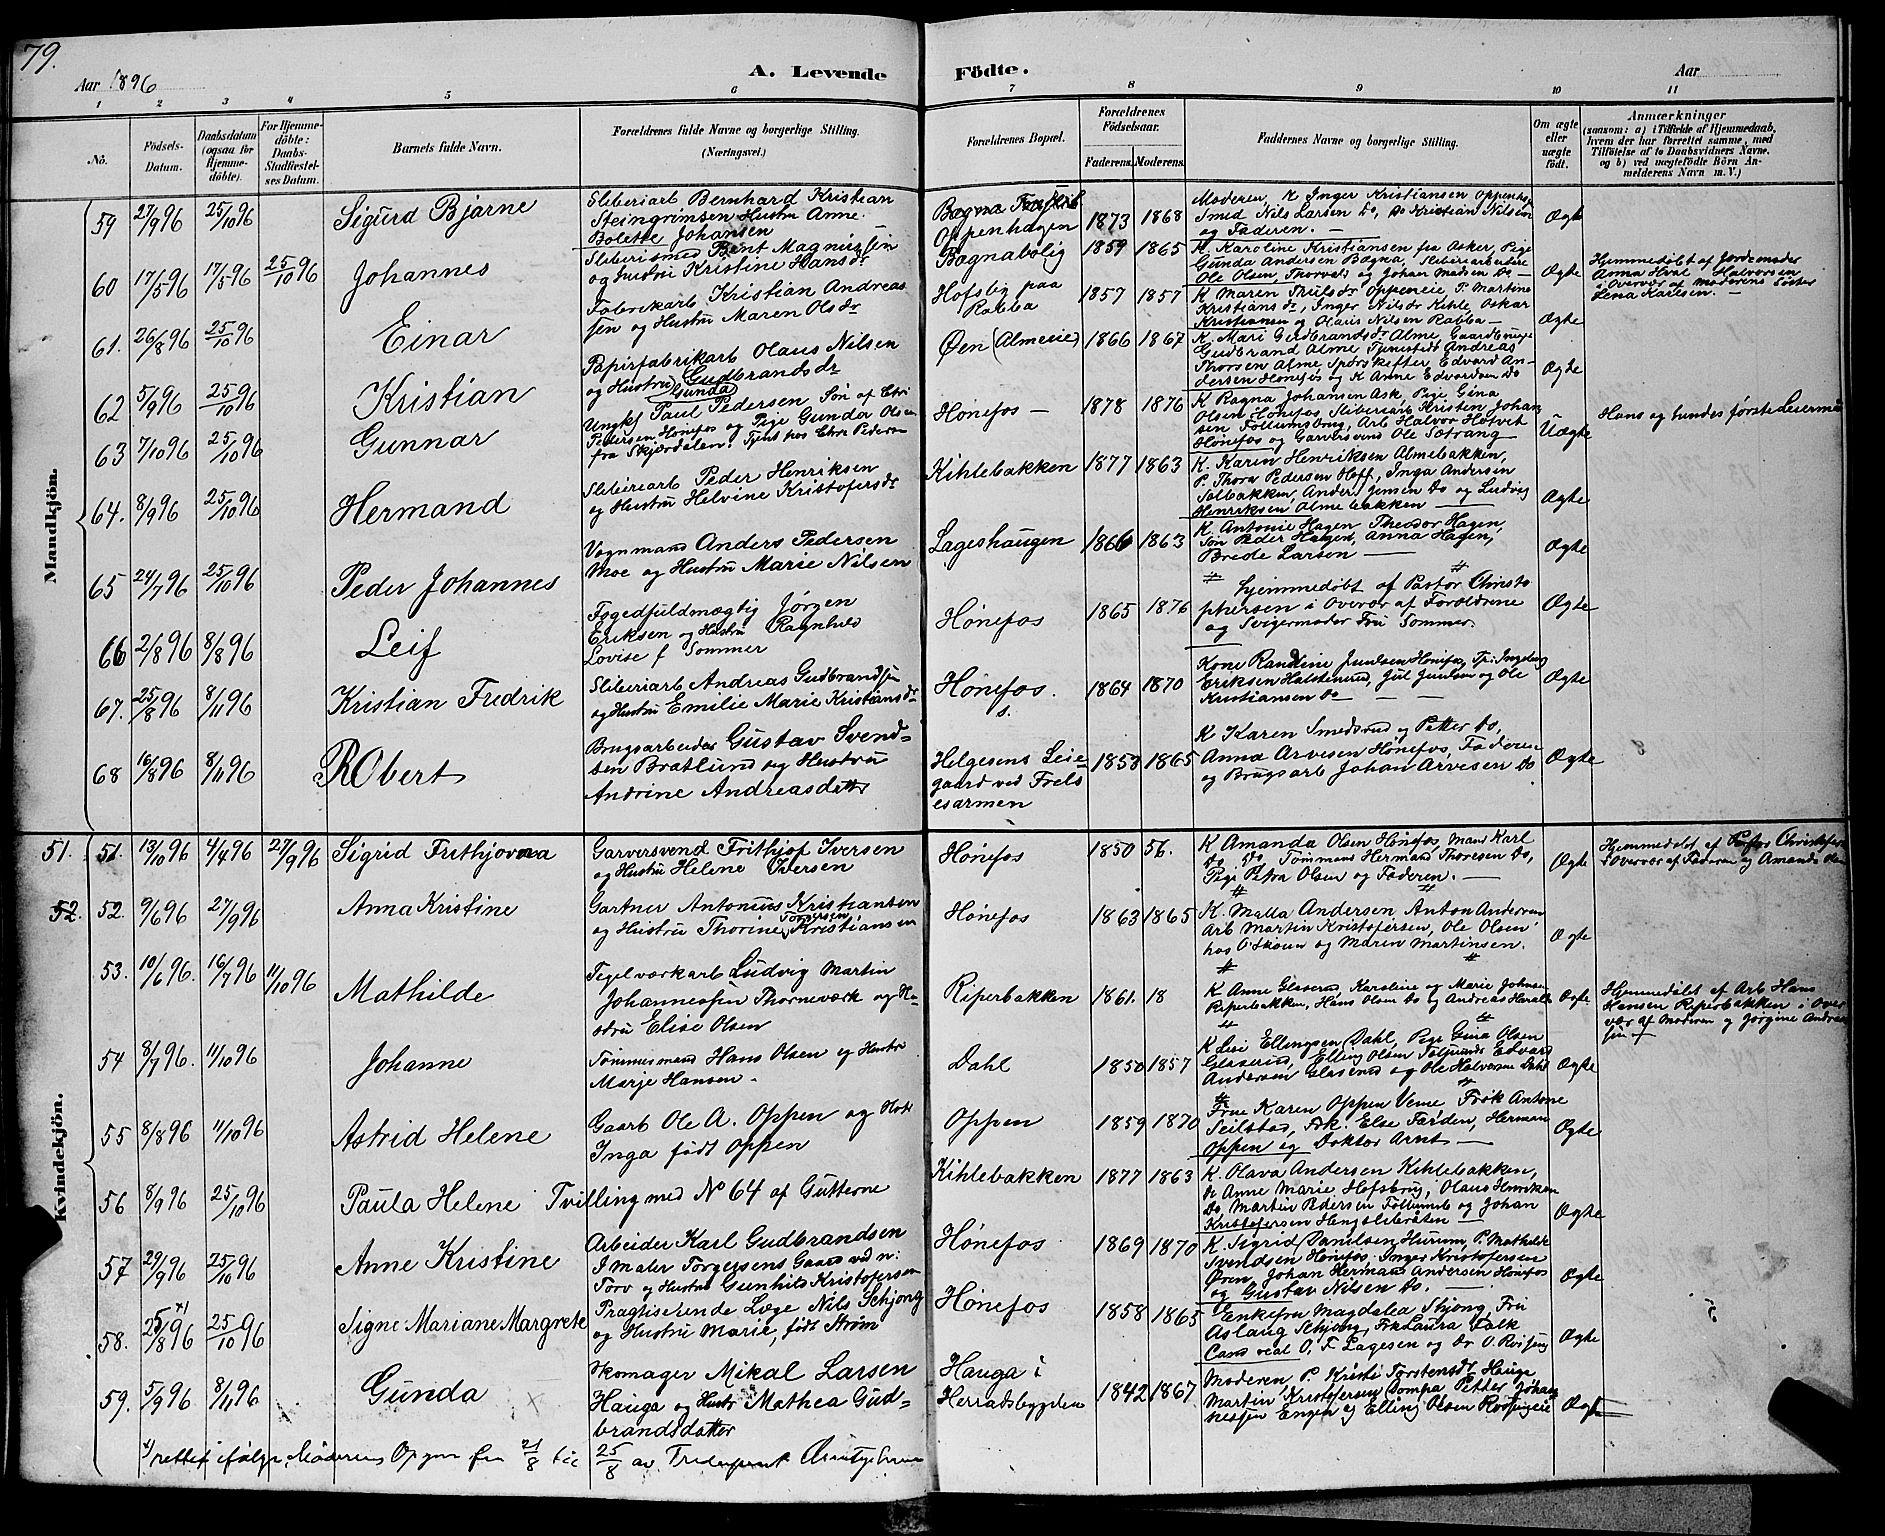 79.
Aar 1896
A. Levende Födte.
Aar
1 2 3 4 5 6 7 8 9 10 11
No.
Födsels-Datum.
Daabsdatum (ogsaa for Hjemmedöbte).
For Hjemmedöbte: Daabs-Stadfæstelses Datum.
Barnets fulde Navn.
Forældrenes fulde Navne og borgerlige Stilling. (Næringsvei.)
Forældrenes Bopæl.
Forældrenes Födselsaar.
Faderens. Moderens.
Faddernes Navne og borgerlige Stilling.
Om ægte eller uægte födt.
Anmærkninger
(saasom: a) i Tilfælde af Hjemmedaab, hvem der har forrettet samme, med Tilföielse af to Daabsvidners Navne, og b) ved uægtefödte Börn Anmelderens Navn m. V.)
Mandkjön.
59 27/9 96 25/10 96 Sigurd Bjarne
Sliberiarb Bernhard Kristian
Steingrimsen Hustru Anne
Bolette Johansen
Oppenhagen 1873 1868
Moderen, K Inger Kristiansen Oppenhag
Smed Nils Larsen Do, Do Kristian Nilsen
og Faderen. —
Ægte
60 17/5 96 17/5 96 25/10 96 Johannes
Sliberismed Bent Magnussen
og Hustru Kristine Hansdr
Bægnabolig 1859 1865
K. Karoline Kristiansen fra Asker, Pige
Gunda Andersen Bægna, Sliberiarbeidere
Ole Olsen, Thorvald og Johan Madsen Do —
Ægte
Hjemmedöbt af Jordemoder
Anna Hval Halvorsen
i Overvær af Moderens Söster
Lena Karlsen. —
61. 26/8 96 25/10 96 Einar
Fabrikarb Kristian Andreas
sen og Hustru Maren Olsdr
Hofsbg paa
Rabba
1857 1857
K Maren Trulsdr Oppeneie P. Martine
Kristiansdr, Inger Nilsdr Kihle, Oskar
Kristiansen og Olaus Nilsen Rabba —
Ægte
62 5/9 96 25/10 96 Kristian
Papirfabrikarb Olaus Nilsen
og Hustru Gudbrandsdr
Gunda
Øen (Almeeie) 1866 1867
K. Mari Gudbrandsdr Alme, Gaardbruger
Gudbrand Alme Tjenestedr Andreas
Thorsen Alme Edvard An-
dersen Hönefos og K Anne Edvardsen Do
Ægte
63 7/10 96 25/10 96 Gunnar
Ungk Paul Pedersen Sön af Chri
Pedersen Hönefos og Pige Gunda Olsen
fra Skjærdalen, Tjent hos Chr Pedersen
Hönefos — 1878 1876
K Ragna Johansen Ask, Pige Gina
Olsen Hönefos, Sliberiarb Kristen Johan
sen Follumsbrug, Arb Halvor
Hönefos og Garversvend Ole Sætrang
Uægte
Hans og hendes förste Leiermaal
64. 8/9 96 25/10 96 Hermand
Sliberiarb Peder Henriksen
og Hustru Helvine Kristofersdr
Kihlebakken 1877 1863
K. Karen Henriksen Almebakken,
P. Thora Pedersen Hoff, Inga Andersen
Solbakken, Anders Jensen Do og Ludvig
Henriksen Almebakken —
Ægte
65 24/7 96 25/10 96 Peder Johannes
Vognmand Anders Pedersen
Moe og Hustru Marie Nilsen
Lageshaugen 1866 1863
K. Antonie Hagen Theodor Hagen,
Sön Peder Hagen, Anna Hagen,
Brede Larsen —
Ægte
66 2/8 96 8/8 96 Leif
Fogedfuldmægtig Jörgen
Eriksen og Hustru Ragnhild
Lovise f Sommer
Hönefos 1865 1876
Hjemmedöbt af Pastor Christo
phersen i Overvær af Forældrene
og Svigermoder Fru Sommer.
Ægte
67. 25/8 96 8/11 96 Kristian Fredrik
Sliberiarb Andreas Gudbrandsen
og Hustru Emilie Marie Kristiansdr
Hönefos.
s.
1864 1870
Kone Randine Juulsen Hönefos, Tp. Ingeborg
Eriksen Halstenrud, Jul Juulsen og Ole
Kristiansen Do —
Ægte
68 16/8 96 8/11 96 RObert
Brugsarbeider Gustav Svend-
sen Bratlund og Hustru
Andrine Andreasdatter
Helgesens Leie
gaard ved Frels
esarmen
1853 1865
K Karen Smedsrud og Petter Do,
Anna Arvesen Hönefos, Faderen
og Brugsarb Johan Arvesen Do
Ægte
Kvindekjön.
51. 51. 13/10 96 4/4 96 27/9 96 Sigrid Frithjovna
Garversvend Frithjof Iversen
og Hustru Helene Iversen
Hönefos 1850 56.
K Amanda Olsen Hönefos, Mans Karl
Do Do, Tömmans Herman Thoresen Do,
Pige Petra Olsen og Faderen. —
Ægte
Hjemmedöbt af Pastor Christofersen
i Overvær af Faderen og Amanda Olsen
52. 52. 9/6 96 27/9 96 Anna Kristine
Gartner Antonius Kristiansen
og Hustru Thorine Kristiansen
Torgersen
Hönefos 1863 1865
K. Malla Andersen, Anton Andersen
Arb Martin Kristofersen, Ole Olsen
hos O. Skouen og Maren Martinsen.
Ægte
53. 10/6 96. 16/7 96 11/10 96 Mathilde
Tegelværkarb Ludvig Martin
Johannessen Thorneværk og Hu-
stru Elise Olsen
Riperbakken 1861. 18
K Anne Glaserud, Karoline og Marie Johnsen
Riperbakken, Hans Olsen Do og Andreas
Ægte
Hjemmedöbt af Arb Hans
Hansen Riperbakken i Over
vær af Moderen og Jörgine Andreas
sen
54 8/7 96. 11/10 96 Johanne
Tömmermand Hans Olsen og Hustru
Marje Hansen.
Dahl 1850 1857
K Lise Ellingsen Dahl, Pige Gina Olsen
Glaserud, Elling Olsen Edvard
Andersen Glaserud og Ole Halvorsen Dahl
Ægte
55 8/8 96 11/10 96 Astrid Helene
Gaarb Ole A. Oppen og Hustr
Inga födt Oppen
Oppen 1859 1870
Frue Karen Oppen Veme Frök Antone
Seilstad, Frk. Else Færden, Herman
Oppen og Doktor Arnt —
Ægte
56 8/9 96 25/10 96 Paula Helene Tvilling med No 64 af Gutterne
Kihlebakken 1877 1863
K. Olava Andersen Kihlebakken,
Do Anne Marie Hofsbrug, Olaus Henriksen
Do Martin Pedersen Follumsb og Johan
Kristofersen Hengsleberaaten —
Ægte
57 29/9 96 25/10 96 Anne Kristine
Arbeider Karl Gudbrandsen
I Maler Torgersens Gaard ved n:
Torv og Hustru Gunhild Kristofersen
Hönefos 1869 1870
K. Sigrid Danielsen Hurum, P. Mathilde
Svendsen Hönefos Inger Kristofersen
Øren, Johan Herman Andersen Hönefos
og Gustav Nilsen Do. —
Ægte
58. 25/8 96 x) 25/10 96 Signe Mariane Margrete
Pragtiserende Læge Nils Schjong
og Hustru Marie, födt Ström
Hönefos 1858 1865
Enkefru Magdalea Skjong, Fru
Aslaug Schjong, Frk Laura Falk
Cand real O. F. Lagesen og Dr O.
Ægte
59. 5/9 96 8/11 96 Gunda
Skomager Mikal Larsen
Hauga og Hustr Mathea Gud-
brandsdatter
Hauga i
Herradsbygden
1842 1867
Moderen P. Kristi Torstensdr Hauge
Martin Kristofersen Dompa Petter Johan
nessen Engen og Elling Olsen
Ægte
x) rettet ifölge Moderens Opgave fra 21/8 til 25/8 av